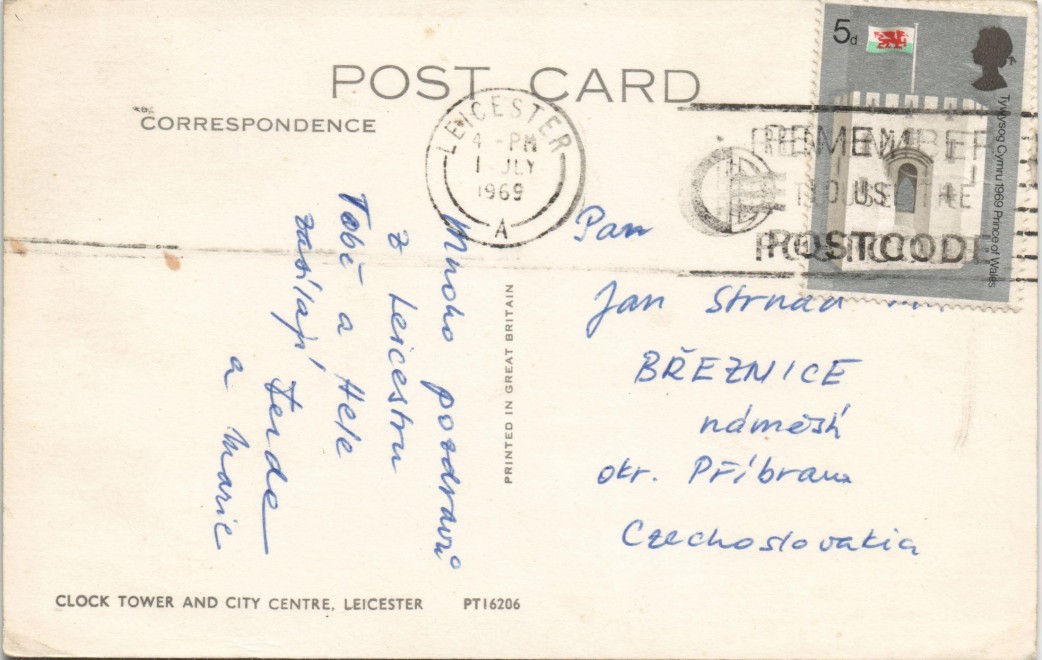 POST CARD
CORRESPONDENCE
LEICESTER
4 - PM
1 JLY
1969
A
REMEMBER
TO USE THE
POSTCODE
5d
Tywysog Cymru 1969 Prince of Wales
Mnoho pozdravů
z Leicestru
Tobě a Hele
zasílají
Ferda
a Marie
PRINTED IN GREAT BRITAIN
Pan
Jan Strnad
BŘEZNICE
náměstí
okr. Příbram
Czechoslovakia
CLOCK TOWER AND CITY CENTRE, LEICESTER PT16206